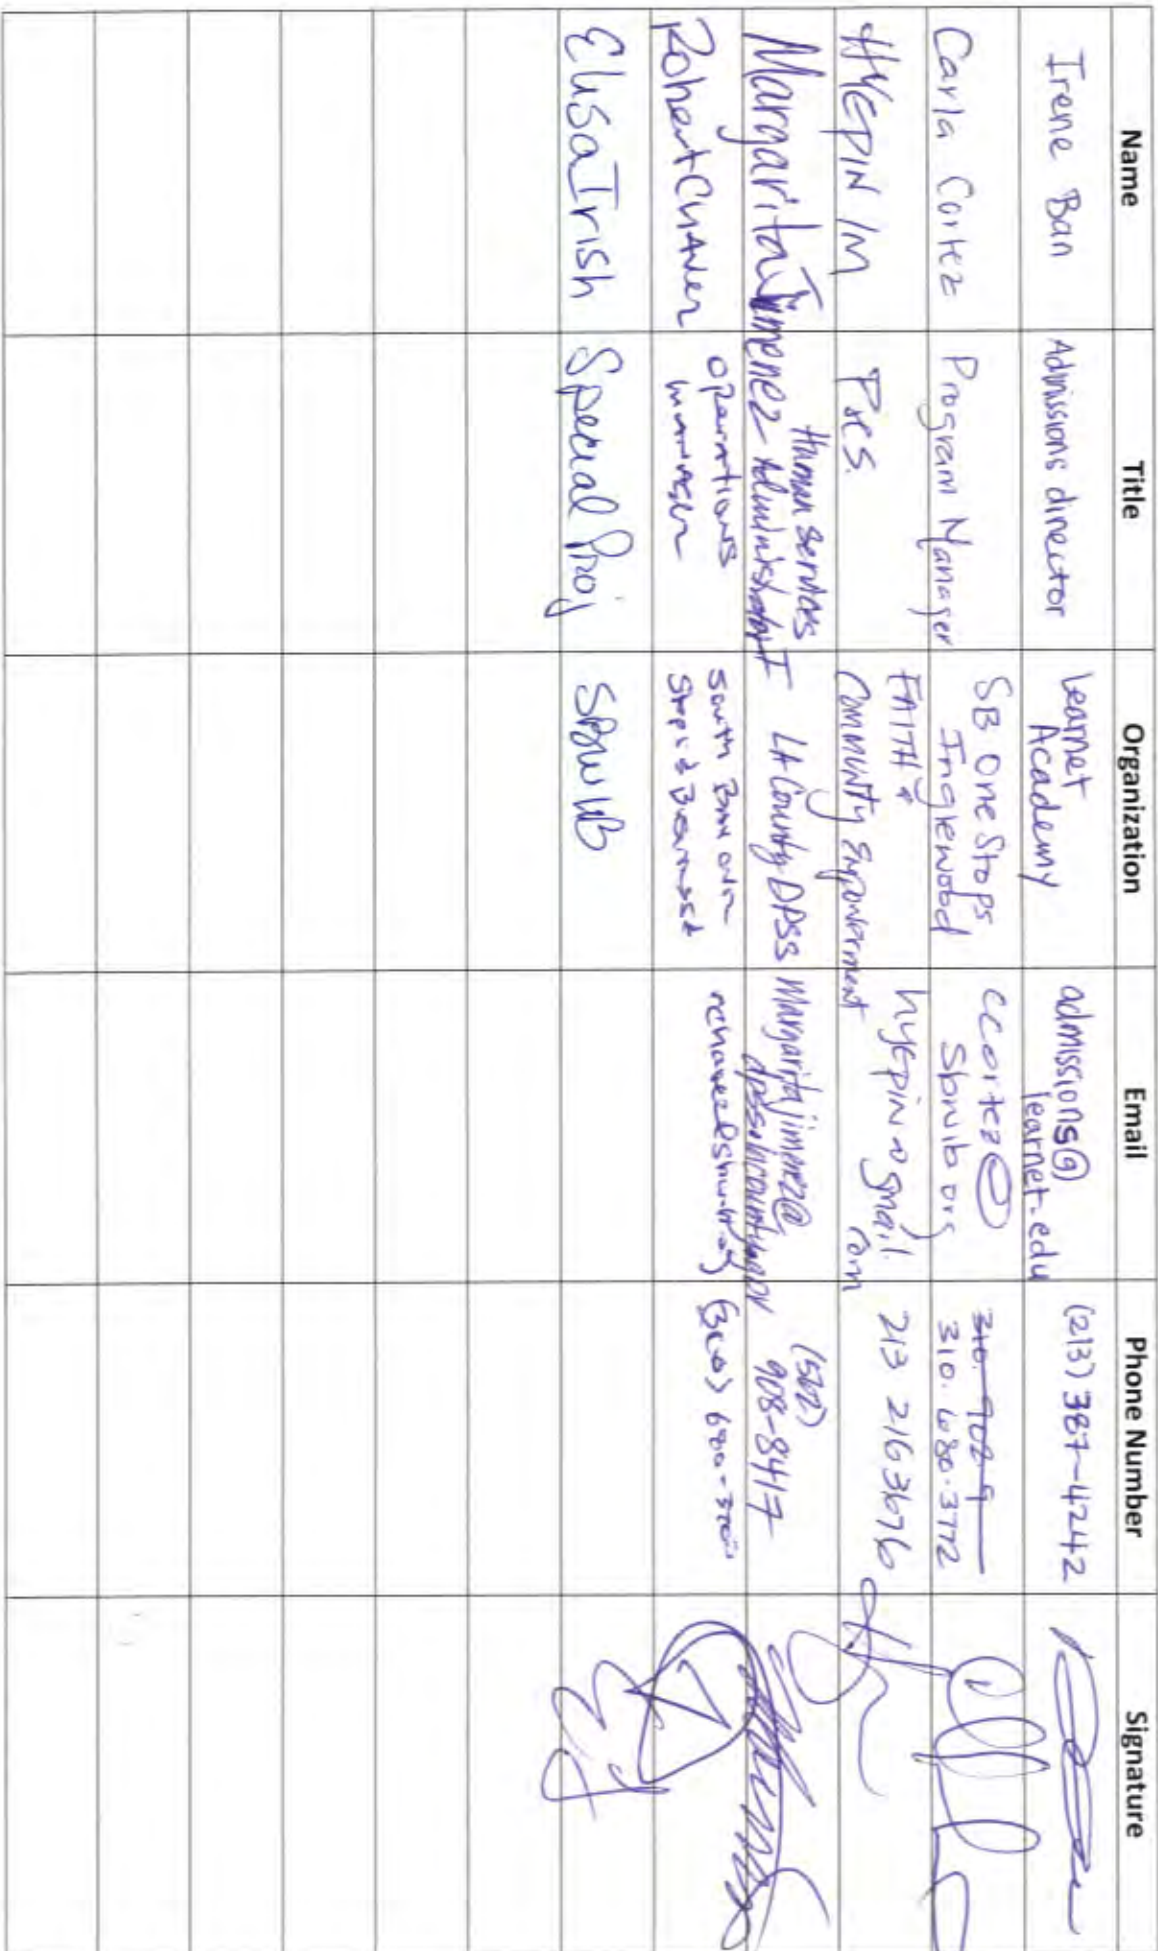 Name Title Organization Email Phone Number Signature
Irene Ban Admissions director Learnet Academy admissions@ learnet.edu (213) 387-4242
Carla Cortez Program Manager SB One Stops Inglewood ccortez@ sbwib.org 310.902-9 310.680-3772
HYEPIN IM Pres. FAITH & Community Empowerment hyepin@gmail.com 213 216 3676
Margarita Jimenez Human Services Administrator I LA County DPSS Margaritajimenez@ dpss.lacounty.gov (562) 908-8417
Robert Chavez operations manager South Bay one Stop (310) 680-
Elisa Irish Special Proj SBWIB